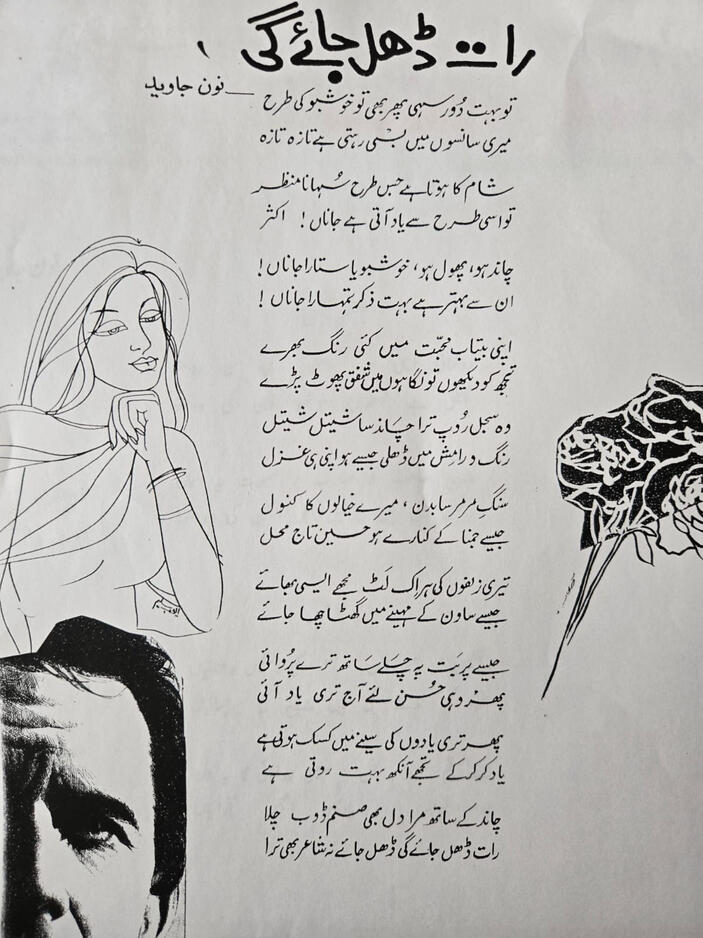 رات ڈھل جائے گی
نون جاوید
تو بہت دُور سہی پھر بھی تو خوشبو کی طرح
میری سانسوں میں بسی رہتی ہے تازہ تازہ
شام کا ہوتا ہے جس طرح سُہانا منظر
تو اسی طرح سے یاد آتی ہے جاناں! اکثر
چاند ہو، پھول ہو، خوشبو یا ستارا جاناں!
ان سے بہتر ہے بہت ذکر تمہارا جاناں!
اپنی بیتاب محبّت میں کئی رنگ بھرے
تجھ کو دیکھوں تو نگاہوں میں شفق پھوٹ پڑے
وہ سجل رُوپ ترا چاند سا شیتل شیتل
رنگ و رامش میں ڈھلی جیسے ہو اپنی ہی غزل
سنگِ مرمر سا بدن، میرے خیالوں کا کنول
جیسے جمنا کے کنارے ہو حسین تاج محل
تیری زلفوں کی ہر اک لَٹ مجھے ایسی بھائے
جیسے ساون کے مہینے میں گھٹا چھا جائے
جیسے پربت پہ چلے ساتھ ترے پُروائی
پھر وہی حُسن لئے آج تری یاد آئی
پھر تری یادوں کی سینے میں کسک ہوتی ہے
یاد کر کر کے تجھے آنکھ بہت روتی ہے
چاند کے ساتھ مرا دل بھی صنم ڈوب چلا
رات ڈھل جائے گی ڈھل جائے نہ شاعر بھی ترا